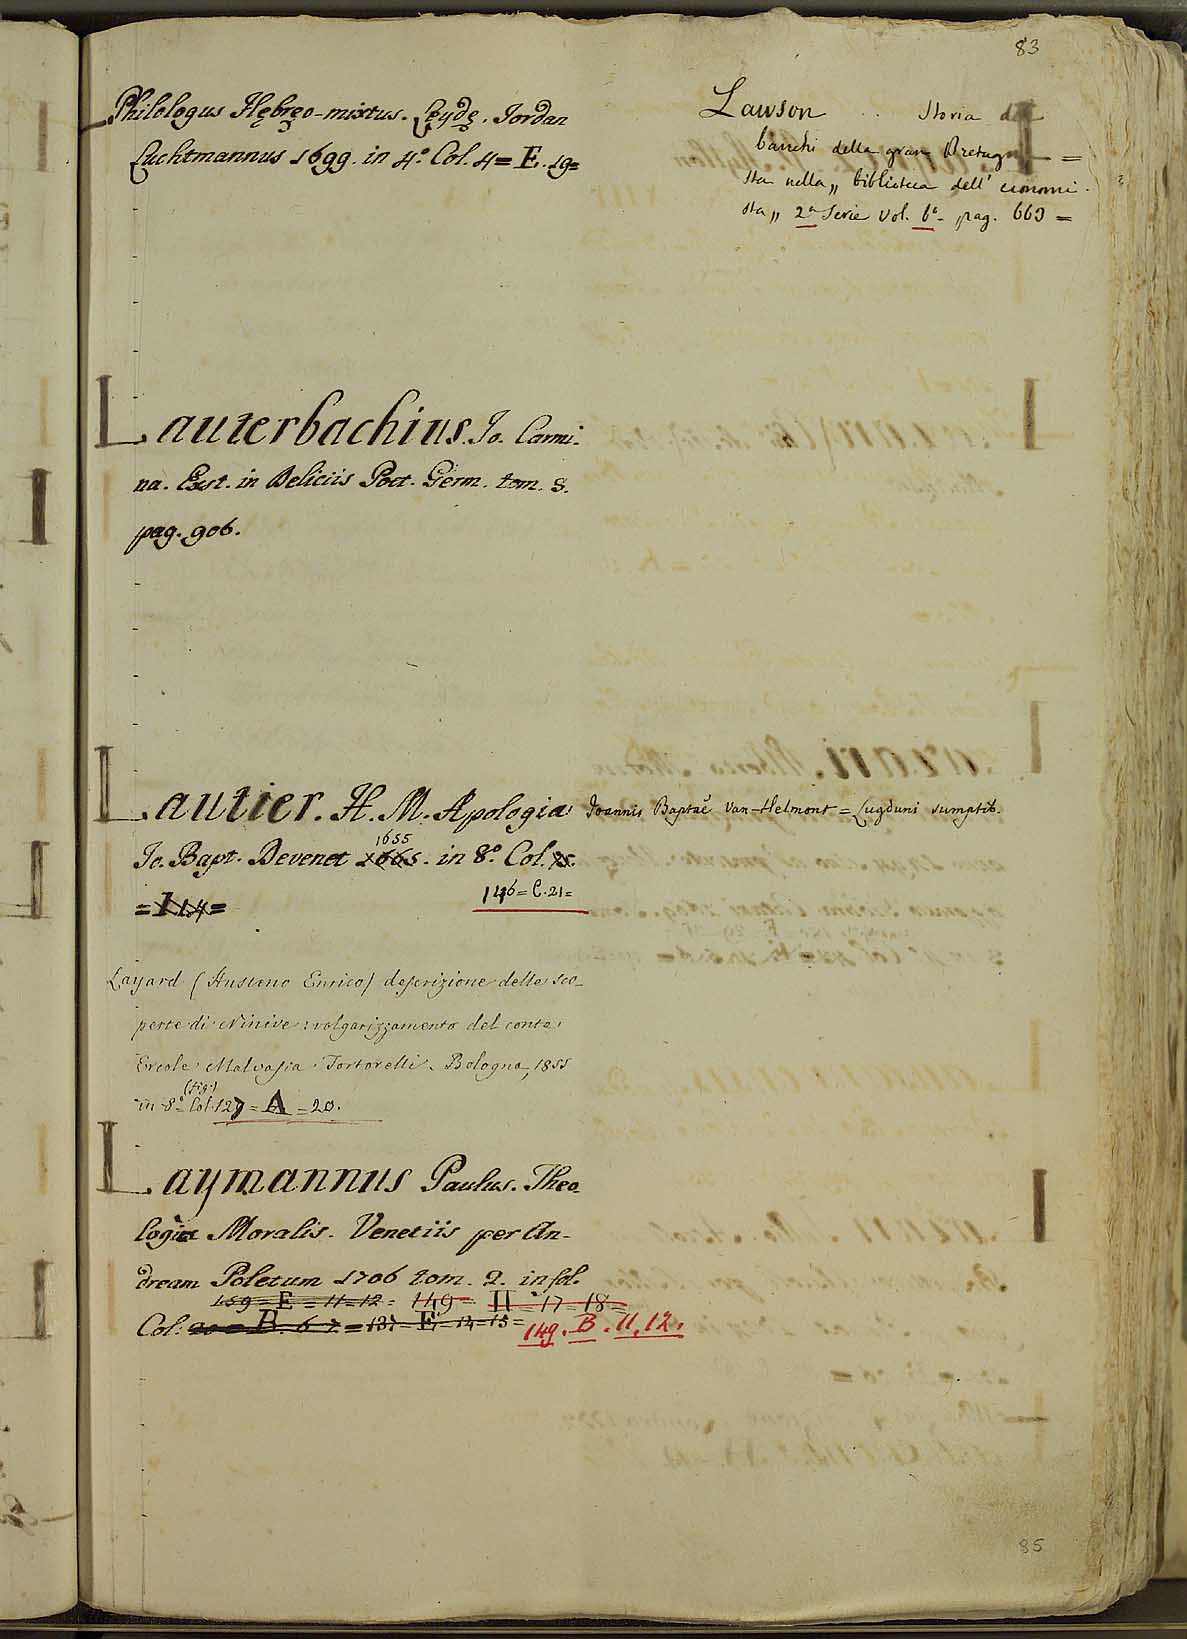 83
Philologus Hębręo-mixtus. Leydę. Jordan
Luchtmannus 1699. in 4.º Col. 4 = E. 19=
Lawson .. Storia dei
banchi della gran Bretagna =
sta nella „ biblioteca dell' economi-
sta „ 2ª Serie vol. 6º - pag. 669 =
Lauterbachius. Jo. Carmi-
na. Ext. in Deliciis Poet. Germ. tom. 3.
pag. 906.
Lautier. H. M. Apologia Joannis Baptæ Van-Helmont = Lugduni sumptib.
1655
Jo. Bapt. Devenet 1665. in 8.º Col. 5.
146 = C. 21 =
= I 14 =
Layard (Austeno Enrico) descrizione delle sco-
perte di Ninive: volgarizzamento del conte
Ercole Malvasia Tortorelli. Bologna, 1855
(fig.)
in 8º Col. 129 = A = 20.
Laymannus Paulus. Theo-
logia Moralis. Venetiis per An-
dream Poletum 1706 tom. 2. in fol.
159 = E = 11 = 12 = 149 = H = 17 = 18 =
Col: 20 = B. 6-7 = 137 = E = 14 = 15 = 149. B. 11, 12.
85